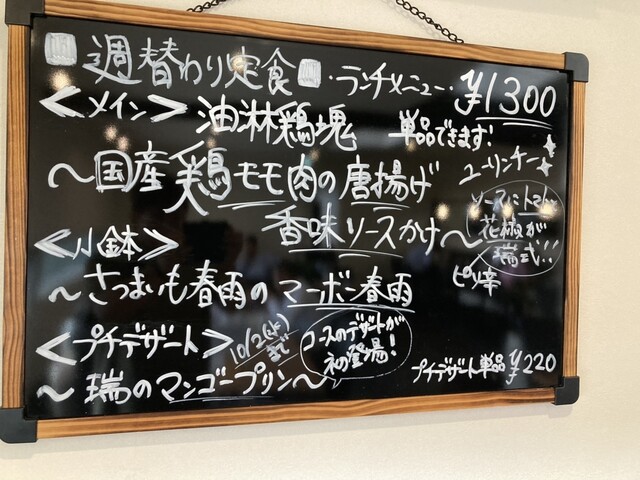 週替わり定食 ・ランチメニュー・ ¥1300
<メイン> 油淋鶏塊 単品できます
ユーリンチー
〜国産鶏モモ肉の唐揚げ
香味ソースかけ〜
ソースに
花椒が
瑞式!!!
ピリ辛
<小鉢>
〜さつまいも春雨のマーボー春雨
<プチデザート> 10/2(水)まで
コースのデザートが
初登場!
〜瑞のマンゴープリン〜
プチデザート単品¥220